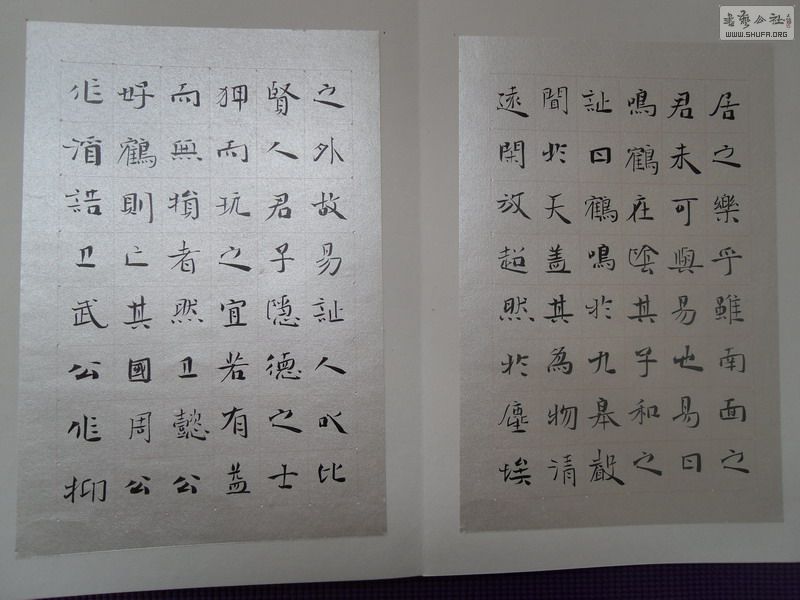 居之樂乎雖南面之
君未可與易也易曰
鳴鶴在陰其子和之
詩曰鶴鳴於九皋聲
聞於天盖其為物清
遠閑放超然於塵埃
之外故易詩人以比
賢人君子隱德之士
狎而玩之宜若有益
而無損者然卫懿公
好鶴則亡其國周公
作酒誥卫武公作抑
書藝公社
WWW.SHUFA.ORG